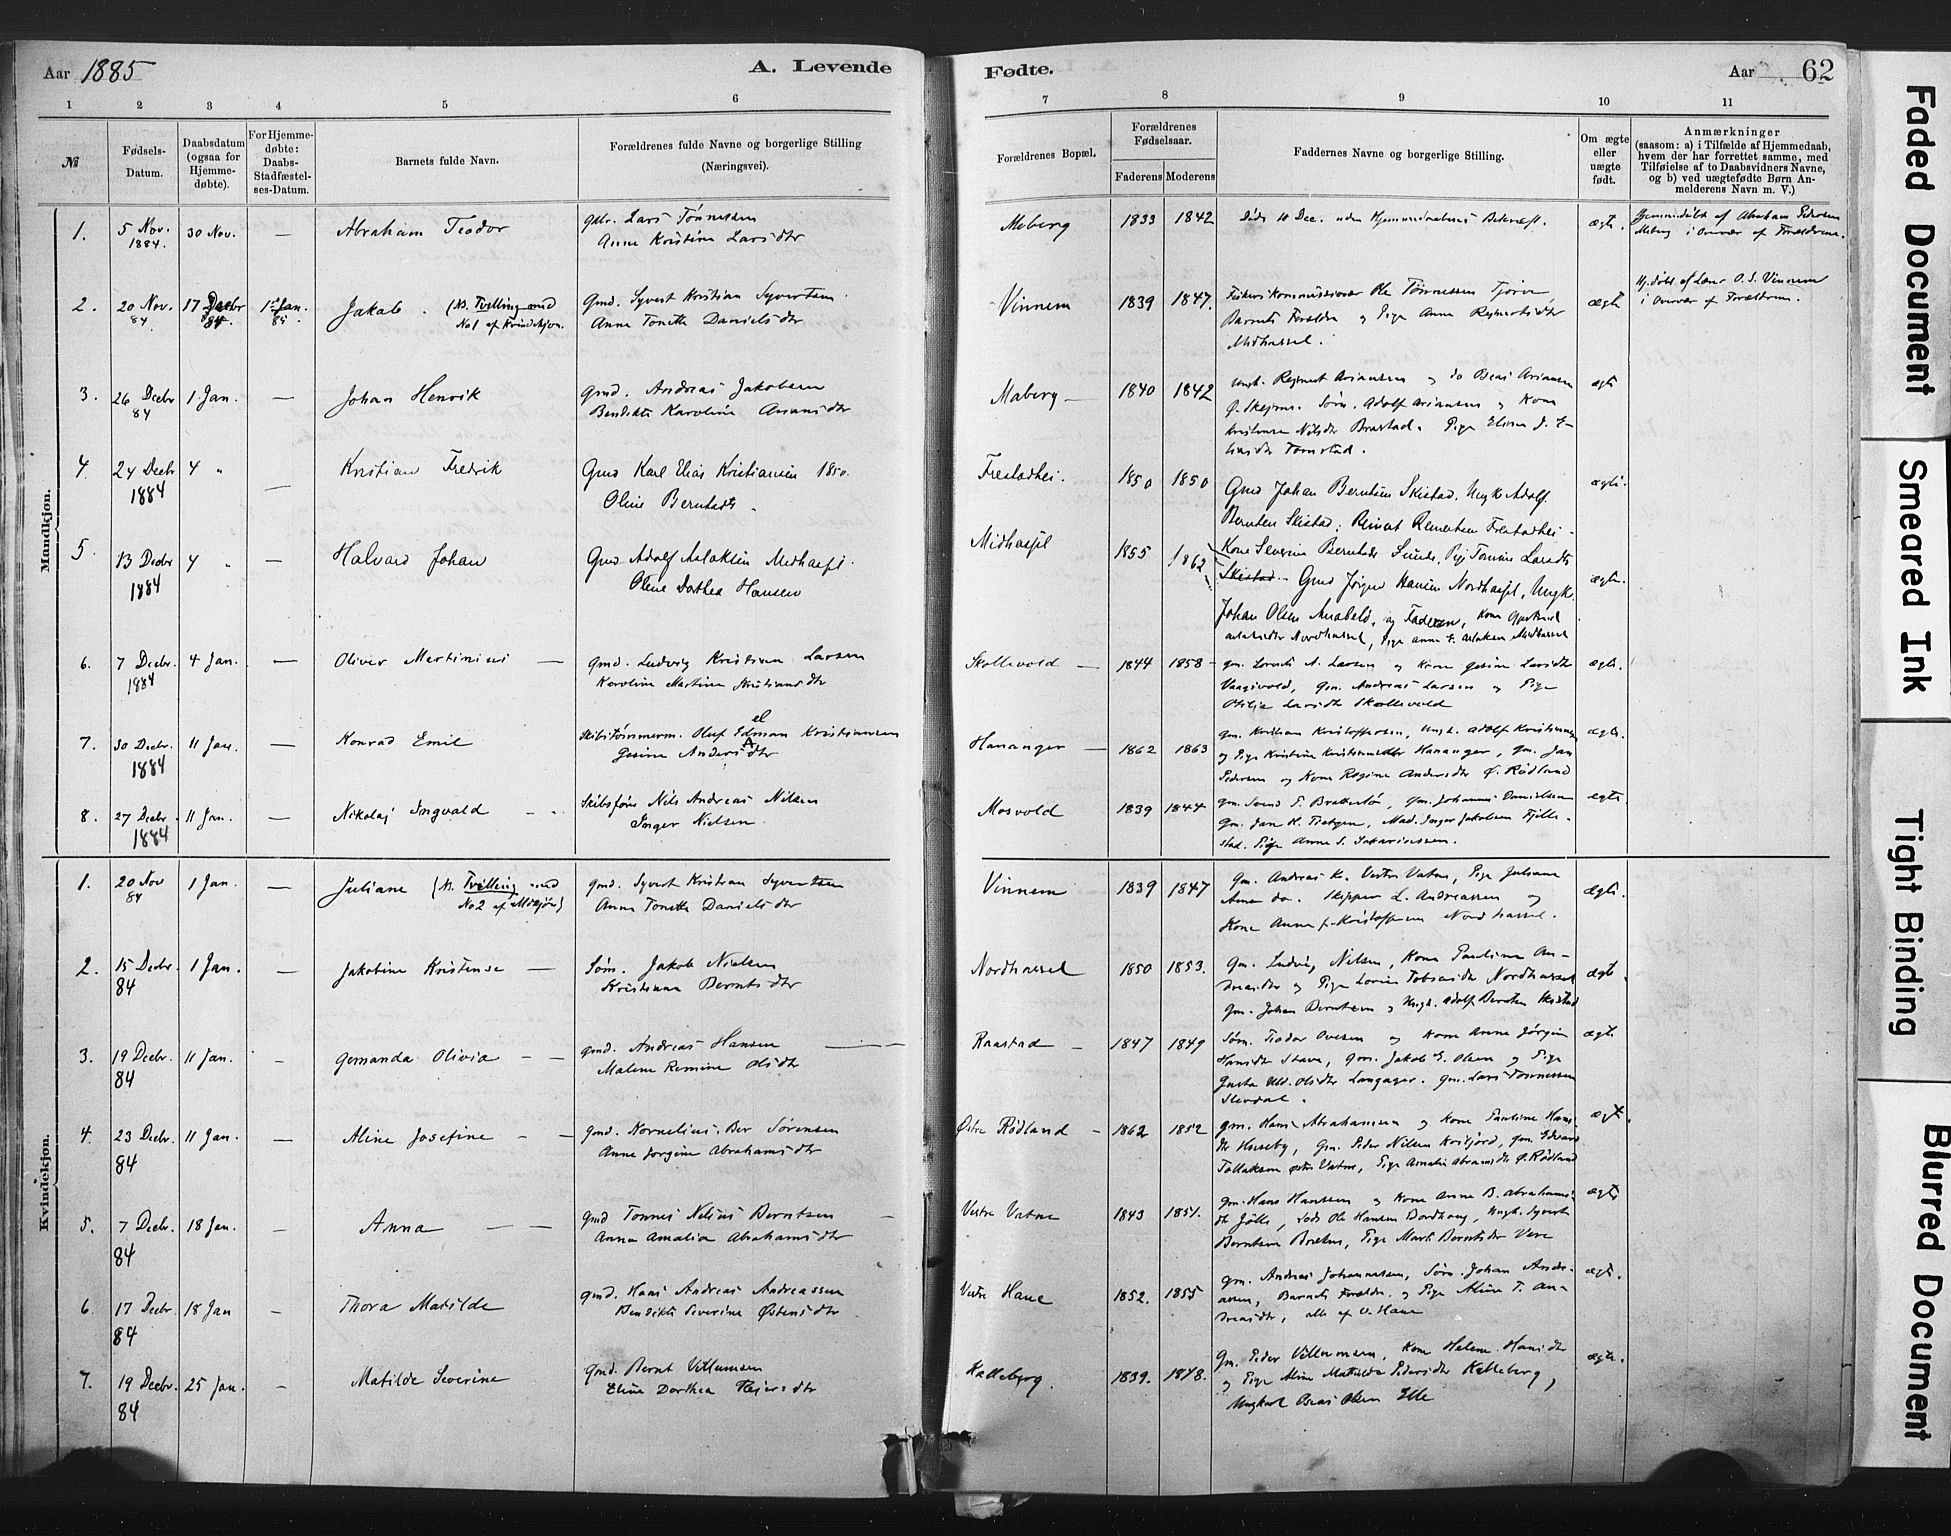 Aar 1885
A. Levende
Fødte.
Aar 62
1 2 3 4 5 6 7 8 9 10 11
№
Fødsels-
Datum.
Daabsdatum
(ogsaa for
Hjemme-
døbte).
For Hjemme-
døbte:
Daabs-
Stadfæstel-
ses-Datum.
Barnets fulde Navn.
Forældrenes fulde Navne og borgerlige Stilling
(Næringsvei).
Forældrenes Bopæl.
Forældrenes
Fødselsaar.
Faderens Moderens
Faddernes Navne og borgerlige Stilling.
Om ægte
eller
uægte
født.
Anmærkninger
(saasom: a) i Tilfælde af Hjemmedaab,
hvem der har forrettet samme, med
Tilføielse af to Daabsvidners Navne,
og b) ved uægtefødte Børn An-
melderens Navn m. V.)
Mandkjøn.
1. 5 Nov. 1884. 30 Nov. — Abraham Teodor
Lars Tønnessen
Anna Kristine Larsdtr
Meberg 1833 1842 Døde 10 Dec. uden Hjemmedaabens Bekræft. ægte.
Hjemmedøbt af Abraham Pedersen
Meberg i Overvær af Forældrene.
2. 20 Nov. 84. 17 Decbr 84. 1 Jan. 85. Jakob. (N. Tvilling med
No 1 af Kvindekjøn.
Gmd. Syvert Kristian Syvertsen
Anne Tonette Danielsdtr
Vinnem 1839 1847. Ole Tønnessen Tjørve
Barnets Forældre og Pige Anne
Midhassel.
ægte
Hj.døbt af Lærer O. S. Vinnem
i Overvær af Forældrene.
3. 26 Decbr 84 1 Jan. — Johan Henrik
Gmd. Andreas Jakobsen
Bendikte Karoline
Meberg — 1840 1842 Ungk. Ariansen og
Søm. Adolf Ariansen og Kone
Nilsdtr Brastad. Pige
Tomstad.
ægte
4. 24 Decbr 1884 4 " — Kristian Fredrik
Gmd Karl Elias Kristiansen 1850.
Oline Berntsdtr.
Frestadhei. 1850 1850 Gmd Johan Berntsen Skistad, Ungk Adolf
Berntsen Skistad; Reinert Reinertsen Frestadhei
Kone Severine Berntsdtr Sunde, Pige Tomine Larsdtr
Skistad.
ægte.
5. 13 Decbr 1884 4 " — Halvard Johan
Gmd Adolf Aslaksen Midhassel.
Oline Dorthea Hansen
Midhassel 1855 1862 Gmd Jørgen Hansen Nordhassel, Ungk.
Johan Olsen og Faderen, Kone
Nordhassel, Pige Anne Aslaksen Midhassel
ægte.
6. 7 Decbr. 1884 4 Jan. — Oliver Martinius —
Gmd. Ludvig Kristian Larsen
Karoline Martine Kristiansdtr
Skollevold — 1844 1858 Gm. A. Larsen og Kone Gesine Larsdtr
Vaagsvold, Gm. Andreas Larsen og Pige
Otilie Larsdtr Skollevold
ægte.
7. 30 Decbr. 1884 11 Jan. — Konrad Emil
Skibstømmerm. Oluf Edman Kristiansen
el
Gesine Andersdtr
Hananger — 1862 1863 Gm. Kristian Kristoffersen, Ungk. Adolf Kristiansen
og Pige Kristine Kristiansdtr Hananger, Gm. Jan
Pedersen og Kone Regine Andersdtr Ø. Rødland
ægte.
8. 27 Decbr. 1884 11 Jan. — Nikolai Ingvald
Skibsfører Nils Andreas Nilsen
Inger Nielsen.
Mosvold 1839 1844 Gm. Svend T. Brekkestø, Gm. Johannes Danielsen
Gm. Jan H. Mad. Inger Jakobsen Fjelle-
stad. Pige Anne S. Sakariassen.
ægte.
Kvindekjøn.
1. 20 Nov 84 1 Jan. — Juliane (N. Tvilling med
No 2 af Mdkjøn)
Gmd. Syvert Kristian Syvertsen
Anne Tonette Danielsdtr
Vinnem 1839 1847 Gm. Andreas K. Vestre Vatne, Pige Juliane
Anna do. Skipper L. Andreassen og
Kone Anne Nordhassel.
ægte.
2. 15 Decbr. 84 1 Jan. — Jakobine Kristense —
Søm. Jakob Nielsen
Kristiane Berntsdtr
Nordhassel 1850 1853. Gm. Ludvig Nilsen, Kone Pauline An-
dreasdtr og Pige Lovise Tobiasdtr Nordhassel
Gm. Johan Berntsen og Ungk. Adolf Berntsen Skistad
ægte.
3. 19 Decbr. 84 11 Jan. — Gemanda Olivia — —
Gmd. Andreas Hansen
Malene Remine Olsdtr
Raastad — 1847 1849 Søm. Teodor Ovesen og Kone Anne Jørgine
Hansdtr Stave, Gm. Jakob E. Olsen og Pige
Olsdtr Langager. Gm. Lars Tønnessen
Slevdal.
ægte.
4. 23 Decbr. 84 11 Jan. — Aline Josefine — —
Gmd. Kornelius Ber Sørensen
Anne Jørgine Abrahamsdtr
Østre Rødland — 1862 1852 Gm. Hans Abrahamsen og Kone Pauline Hans-
dtr Huseby, Gm. Peder Nilsen Gm. Edvard
Tollaksen østre Vatne, Pige Amalie Abramsdtr Ø. Rødland
ægt.
5. 7 Decbr. 84 18 Jan. — Anna — —
Gmd Tønnes Nelius Berntsen —
Anna Amalia Abrahamsdtr
Vestre Vatne 1843 1851. Gm. Hans Hanssen og Kone Anne B. Abrahams-
dtr Jølle, Ole Hansen Ungk. Syvert
Berntsen Pige Marti Berntsdtr Vere
ægte
6. 17 Decbr. 84 18 Jan — Thora Matilde
Gmd. Hans Andreas Andreassen
Bendikte Severine Østensdtr
Vestre Hane 1852. 1855 Gm. Andreas Johannessen, Søm. Johan Andre-
assen, Barnets Forældre og Pige Aline T. An-
dreasdtr, alle af V. Hane
ægte.
7. 19 Decbr. 84 25 Jan. — Matilde Severine
Gmd. Bernt Villumsen
Eline Dorthea
Kalleberg. 1839. 1848. Gm. Peder Villumsen, Kone Helene Hansdtr
og Pige Aline Mathilde Pedersdtr Kalleberg,
Ungkarl Olsen Elle
ægte.
Faded Document
Smeared Ink
Tight Binding
Blurred Document